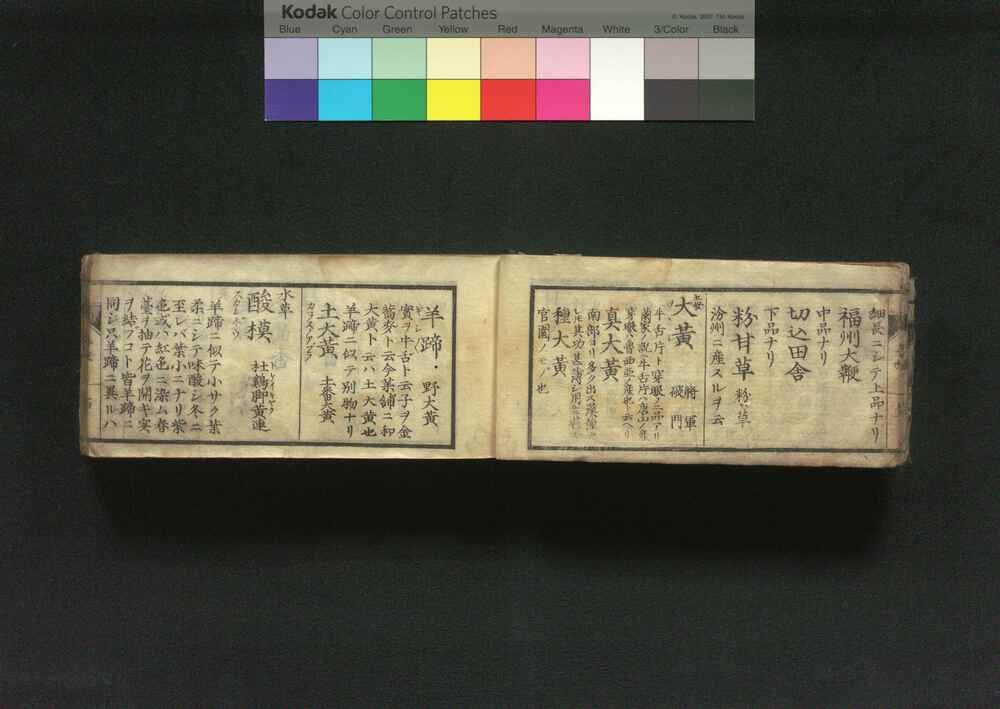 Kodak Color Control Patches
© Kodak, 2007 TM: Kodak
Blue Cyan Green Yellow Red Magenta White 3/Color Black
細長ニシテ上品ナリ
福州大鞭
中品ナリ
切込田舎
下品ナリ
粉甘草 粉草
汾州ニ産スルヲ云
大黄 将軍
破門
牛舌片ト穿眼二品アリ
真大黄
種大黄
官園ノモノ也
羊蹄・野大黄
実ヲ牛舌ト云子ヲ金
蕎麥ト云今薬舗ニ和
大黄ト云ハ土大黄也
羊蹄ニ似テ別物ナリ
土大黄 土番大黄
水草
酸模 杜鵑脚黄連
羊蹄ニ似テ小サク葉
柔ニシテ味酸シ冬ニ
至レバ葉小ニナリ紫
色或ハ紅色ニ染ム春
薹ヲ抽テ花ヲ開キ実
ヲ結フコト皆羊蹄ニ
同シ只羊蹄ニ異ルハ